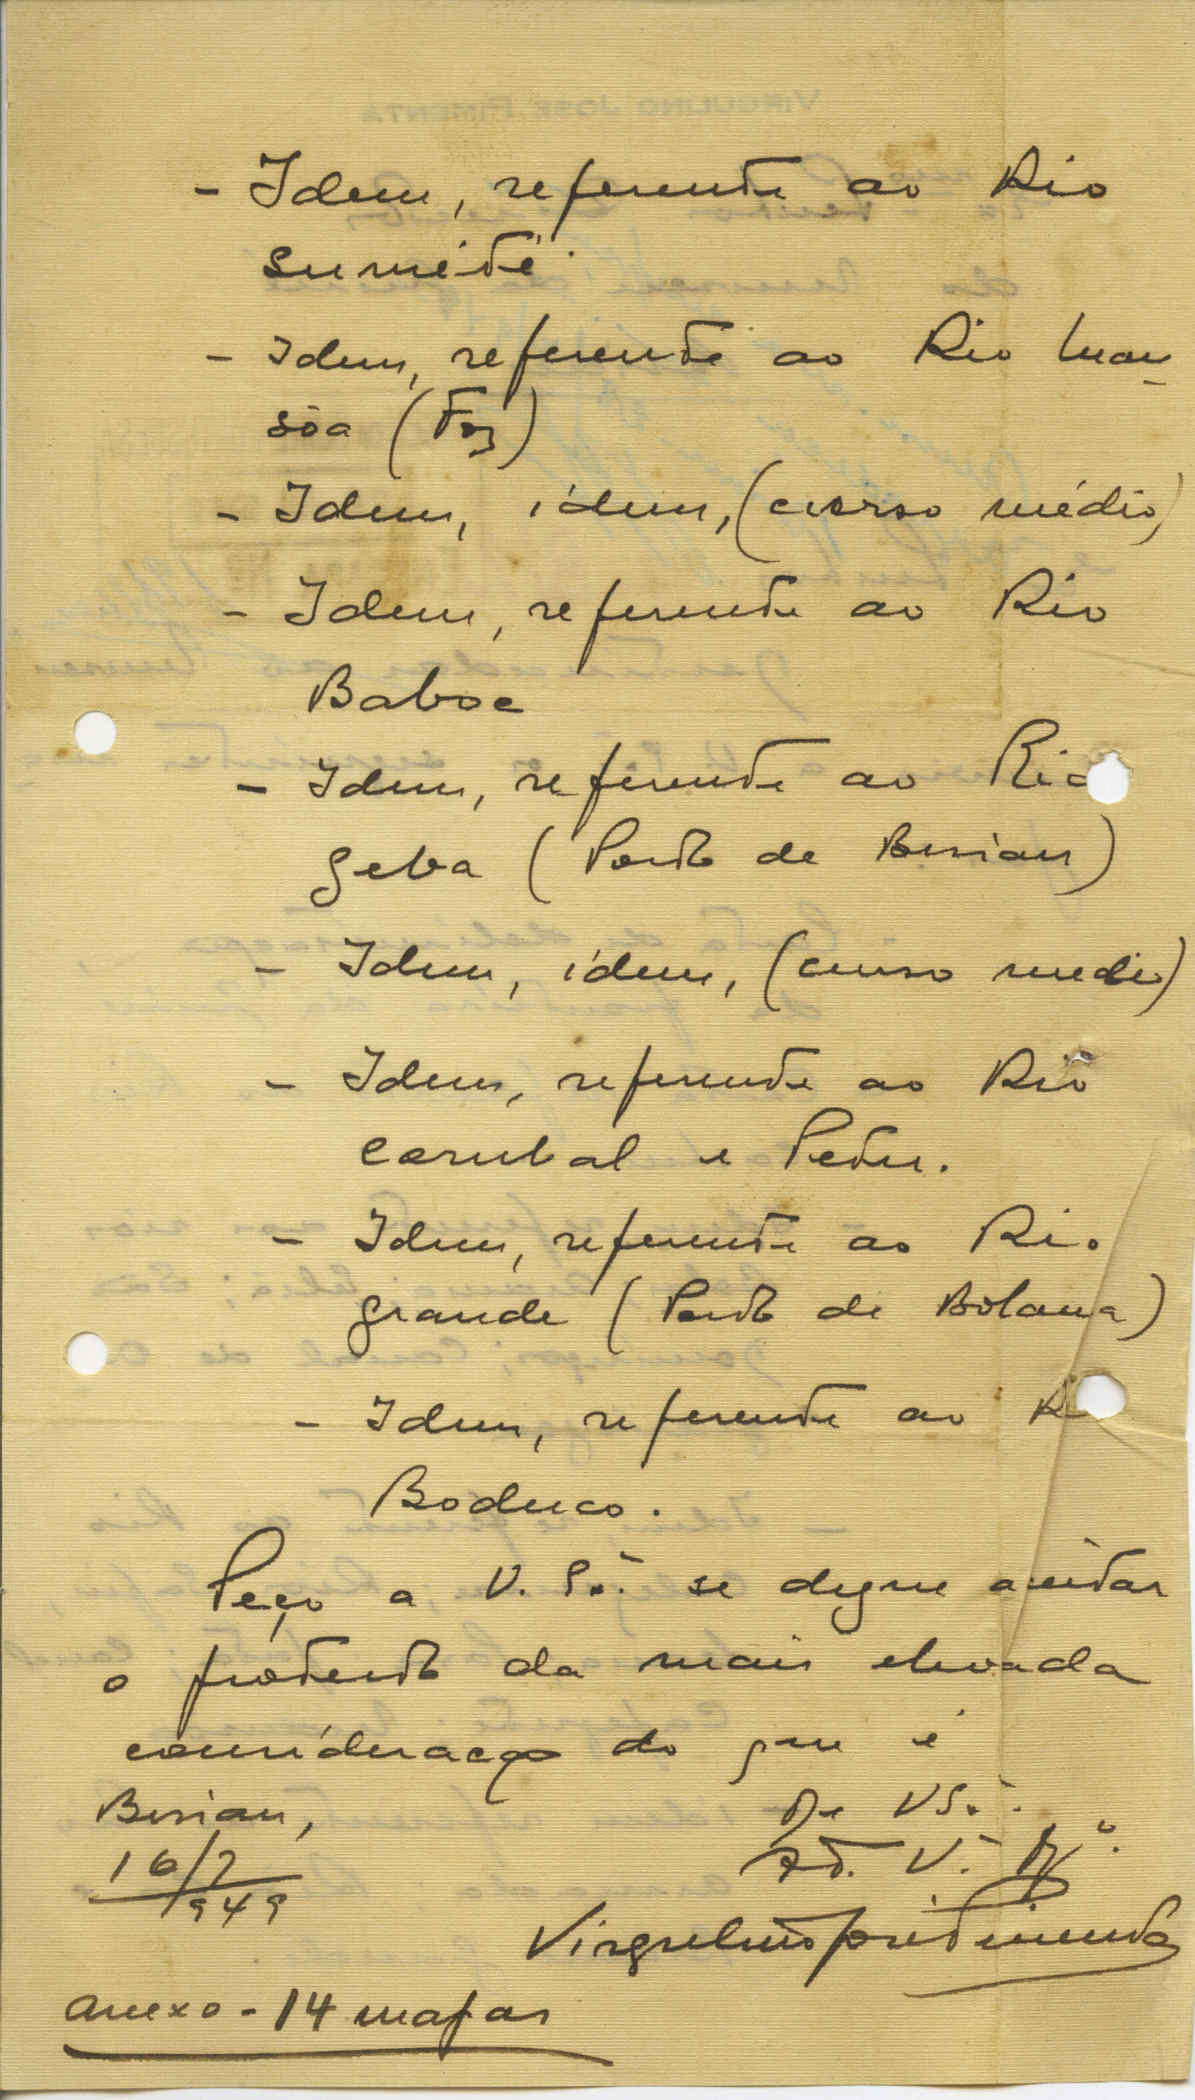 - Idem, referente ao Rio
Sumétè.
- Idem, referente ao Rio Man
sôa (Foz)
- Idem, idem, (curso médio)
- Idem, referente ao Rio
Baboc
- Idem, referente ao Rio
Geba (Porto de Bissau)
- Idem, idem, (curso medio)
- Idem, referente ao Rio
Corubal e Fedu.
- Idem, referente ao Rio
grande (Porto de Bolama)
- Idem, referente ao R
Boduco.
Peço a V. Sª. se digne aceitar
o protesto da mais elevada
consideração do que é
Bissau,
De V Sª.
16/7
949
At. Vº.
Virgulino José Pimenta
Anexo - 14 mapas